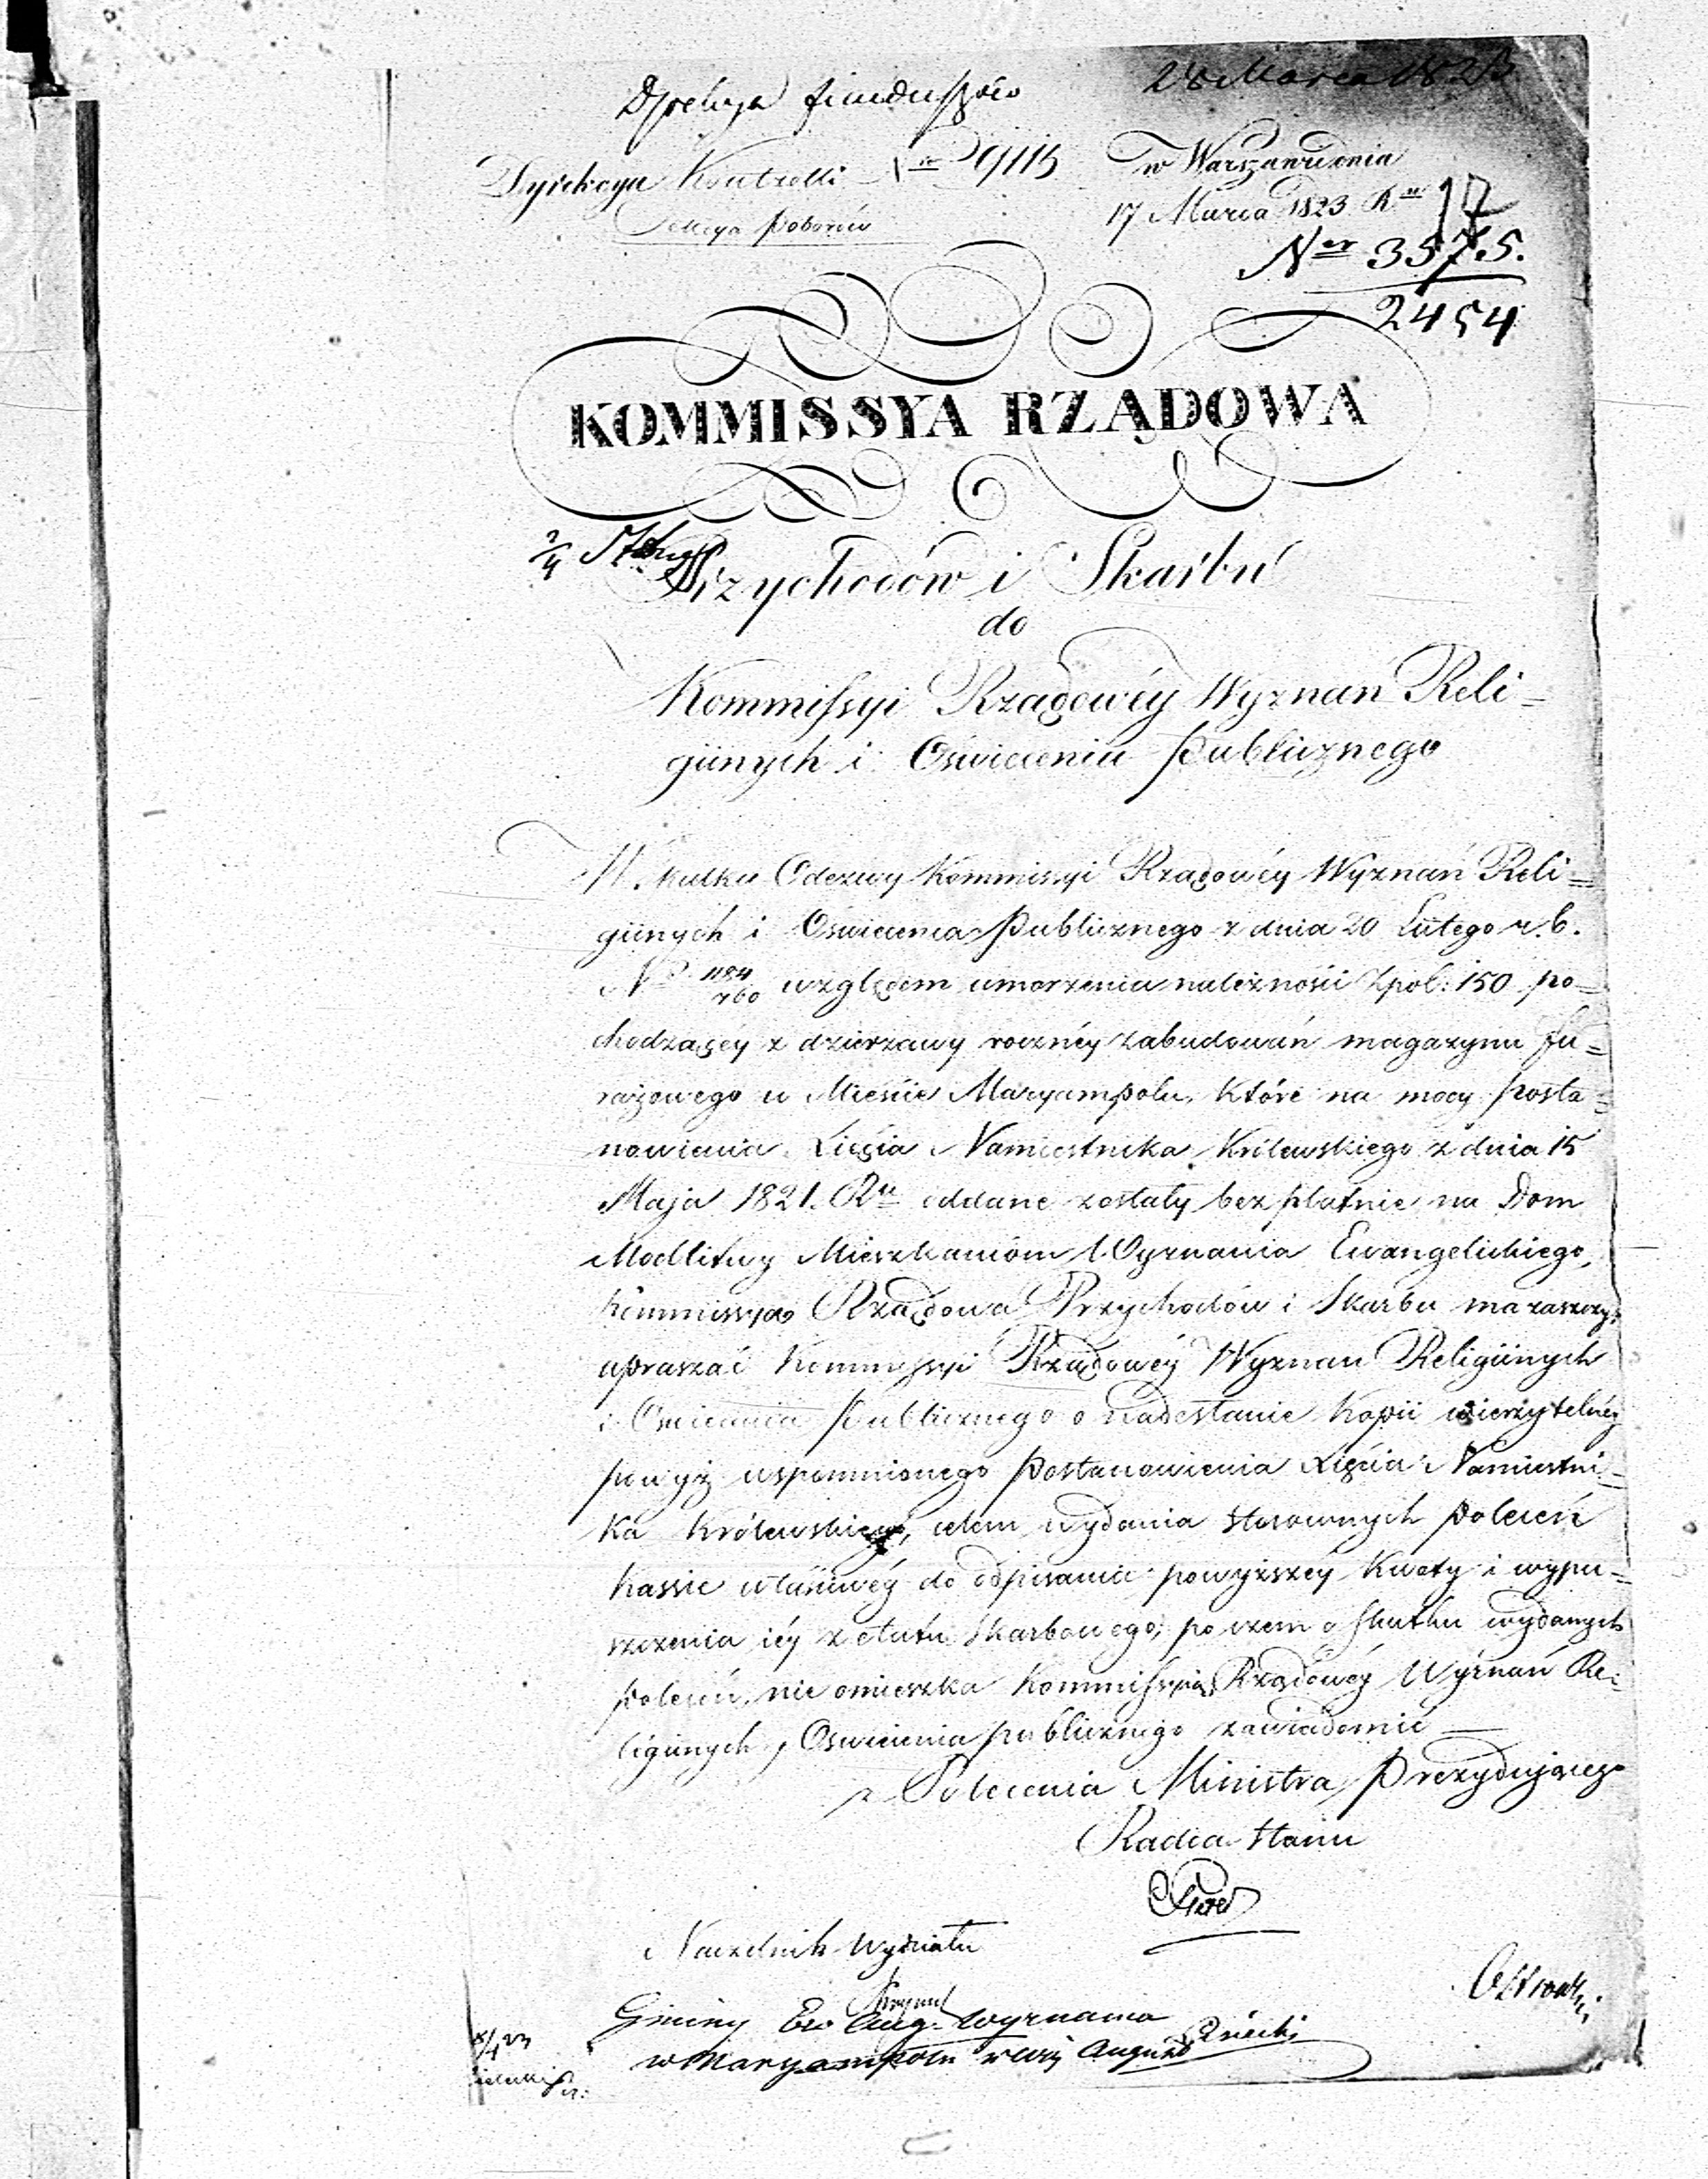 28 Marca 1823
Dyrekcya funduszów
Dyrekcya Kontrolli Nro 9115
Sekcya Poborów
w Warszawie dnia
17 Marca 1823 Ru
17
Ner 3575.
2454
KOMMISSYA RZĄDOWA
Przychodów i Skarbu
do
Kommissyi Rządowéy Wyznań Reli=
giinych i Oświecenia Publicznego
W skutku Odezwy Kommissyi Rządowéy Wyznań Reli=
giinych i Oświecenia Publicznego z dnia 20 Lutego r. b.
No 1184/760 względem umorzenia należności Złpol: 150 po=
chodzącéy z dzierżawy rocznéy zabudowań magazynu fu=
rażowego w Mieście Maryampolu, które na mocy posta=
nowienia Xięcia Namiestnika Królewskiego z dnia 15
Maja 1821. Ru oddane zostały bezpłatnie na Dom
Modlitwy Mieszkańcom Wyznania Ewangelickiego,
Kommissya Rządowa Przychodów i Skarbu ma zaszczyt
upraszać Kommissyi Rządowéy Wyznań Religiinych
i Oświecenia Publicznego o nadesłanie Kopii wierzytelnéy
powyż wspomnionego Postanowienia Xięcia Namiestni=
ka Królewskiego, celem wydania stosownych poleceń
Kassie właściwéy do odpisania powyższéy Kwoty i wypu=
szczenia iéy z etatu Skarbowego; po czem o skutku wydanych
poleceń, nie omieszka Kommissyią Rządowéy Wyznań Re=
ligiinych i Oświecenia publicznego zawiadomić
z Polecenia Ministra Prezydującego
Radca Stanu
Naczelnik Wydziału
Gminy Ew Aug. wyznania
w Maryampolu w Wój August